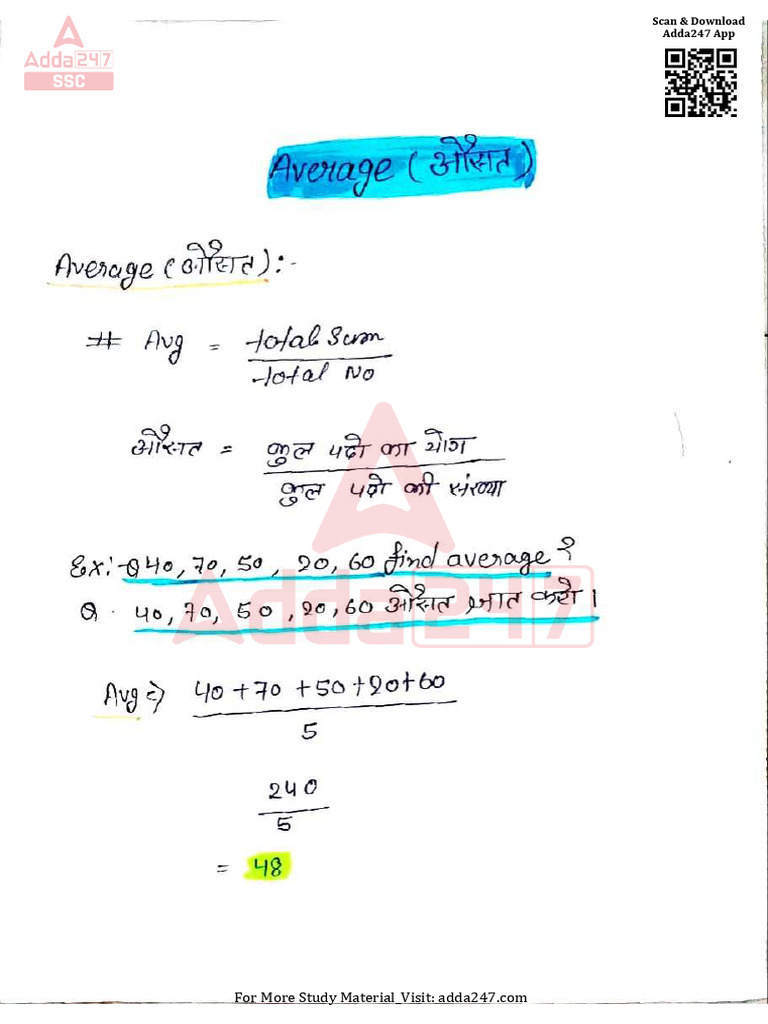 Scan & Download
Adda247 App
Adda247
SSC
Average (औसत)
Average (औसत) :-
# Avg = total Sum
total No
औसत = कुल पदो का योग
कुल पदो की संख्या
Ex:- Q 40, 70, 50, 20, 60 find average?
Q. 40, 70, 50, 20, 60 औसत ज्ञात करो।
Adda247
Avg ⇒ 40 + 70 + 50 + 20 + 60
5
240
5
= 48
For More Study Material Visit: adda247.com